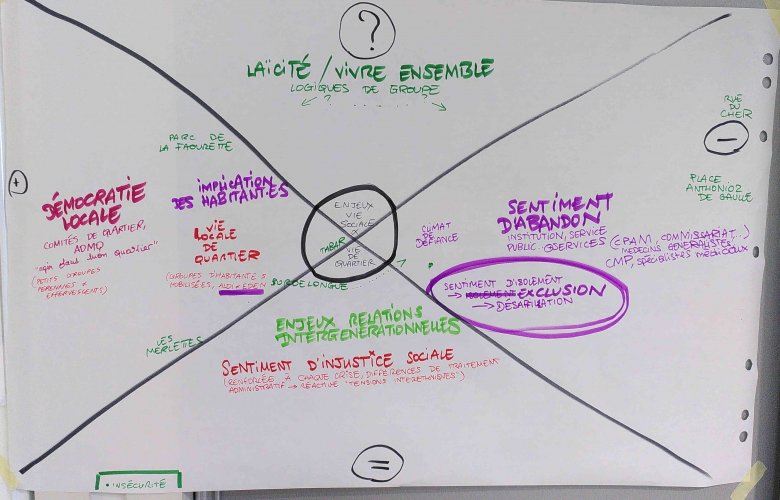 ?
LAÏCITÉ / VIVRE ENSEMBLE
LOGIQUES DE GROUPE
? ?
PARC DE
LA FAOURETTE
+
DÉMOCRATIE
LOCALE
COMITÉS DE QUARTIER,
"agir dans mon quartier"
(PETITS GROUPES
PERSONNES ×
EFFERVESCENTS)
IMPLICATION
DES HABITANT·ES
VIE
LOCALE
DE QUARTIER
(GROUPES D'HABITANT·E·S
MOBILISÉES, ALDI × EDEN
BORDELONGUE
TABAR
ENJEUX
VIE
SOCIALE
×
VIE
DE QUARTIER
CLIMAT
DE
DÉFIANCE
RUE
DU
CHER
−
PLACE
ANTHONIOZ
DE GAULLE
SENTIMENT
D'ABANDON
INSTITUTION, SERVICE
PUBLIC × SERVICES
(CPAM, COMMISSARIAT...)
MÉDECINS GÉNÉRALISTES
CMP, SPÉCIALISTES MÉDICAUX
SENTIMENT D'ISOLEMENT
→ ISOLEMENT EXCLUSION
→ DÉSAFILIATION
LES
MERLETTES
ENJEUX RELATIONS
INTERGENERATIONNELLES
SENTIMENT D'INJUSTICE SOCIALE
(RENFORCÉE À CHAQUE CRISE, DIFFÉRENCES DE TRAITEMENT
ADMINISTRATIF → RÉACTIVE "TENSIONS INTERETHNIQUES")
=
• INSÉCURITÉ